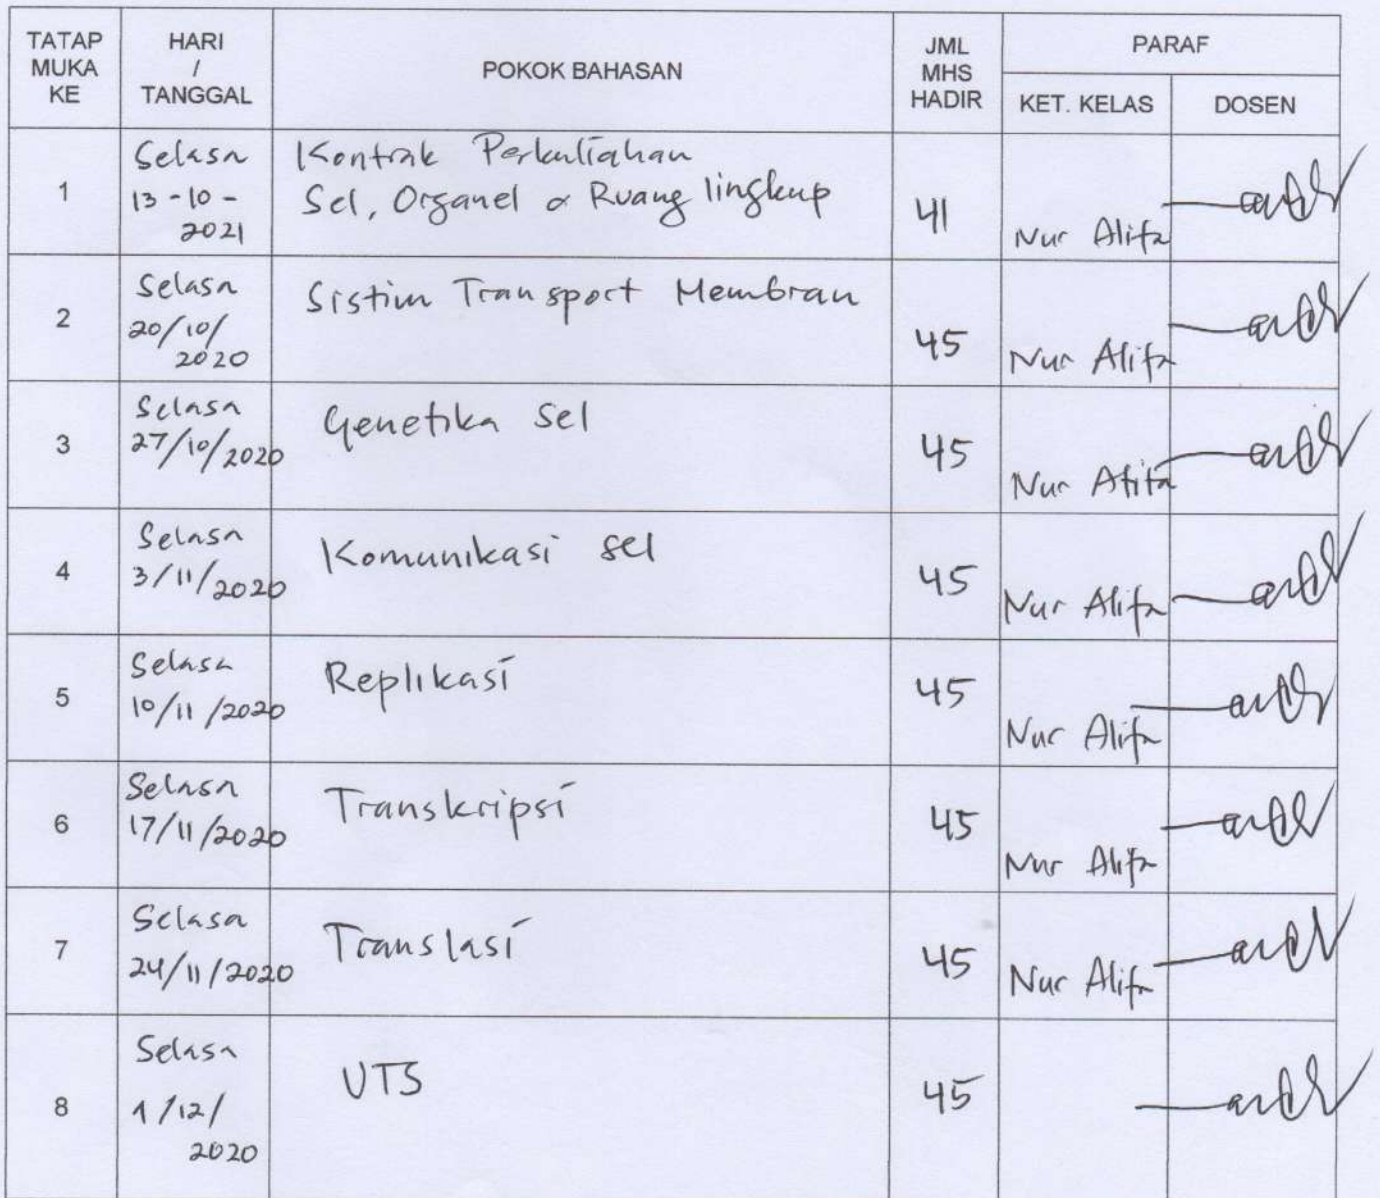 TATAP MUKA KE
HARI / TANGGAL
POKOK BAHASAN
JML MHS HADIR
PARAF
KET. KELAS
DOSEN
1
Selasa
13-10-
2021
Kontrak Perkuliahan
Sel, Organel & Ruang lingkup
41
Nur Alifa
2
Selasa
20/10/
2020
Sistim Transport Membran
45
Nur Alifa
3
Selasa
27/10/2020
Genetika Sel
45
Nur Alifa
4
Selasa
3/11/2020
Komunikasi Sel
45
Nur Alifa
5
Selasa
10/11/2020
Replikasi
45
Nur Alifa
6
Selasa
17/11/2020
Transkripsi
45
Nur Alifa
7
Selasa
24/11/2020
Translasi
45
Nur Alifa
8
Selasa
1/12/
2020
UTS
45